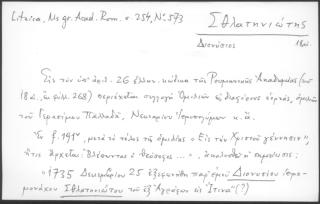 Litzica, Ms gr. Acad. Rom. σ. 254, Νο 573
Σθλατηνιώτης
Διονύσιος 18αι.
Εἰς τὸν ὑπ' ἀριθ. 26 ἑλλην. κώδικα τῆς Ρουμανικῆς Ἀκαδημίας (τοῦ
18 αἰ., φύλλ. 268) περιέχεται συλλογὴ Ὁμιλιῶν εἰς διαφόρους ἑορτάς,
τοῦ Γερασίμου Παλλαδᾶ, Νεκταρίου Ἱεροσολύμων κ. ἄ.
Ἐν φ. 191ν, μετὰ τὸ τέλος τῆς ὁμιλίας "Εἰς τὴν Χριστοῦ γέννησιν",
ἥτις ἄρχεται Βλέποντας ὁ θεόσοφος...", ἀκολουθεῖ ἡ σημείωσις:
"1735 Δεκεμβρίου 25 ἐξεφωνήθη παρ' ἐμοῦ Διονυσίου ἱερο-
μονάχου Σθλατονιώτου τοῦ ἐξ Ἀγράφων εἰς Ἴτινα" (?)